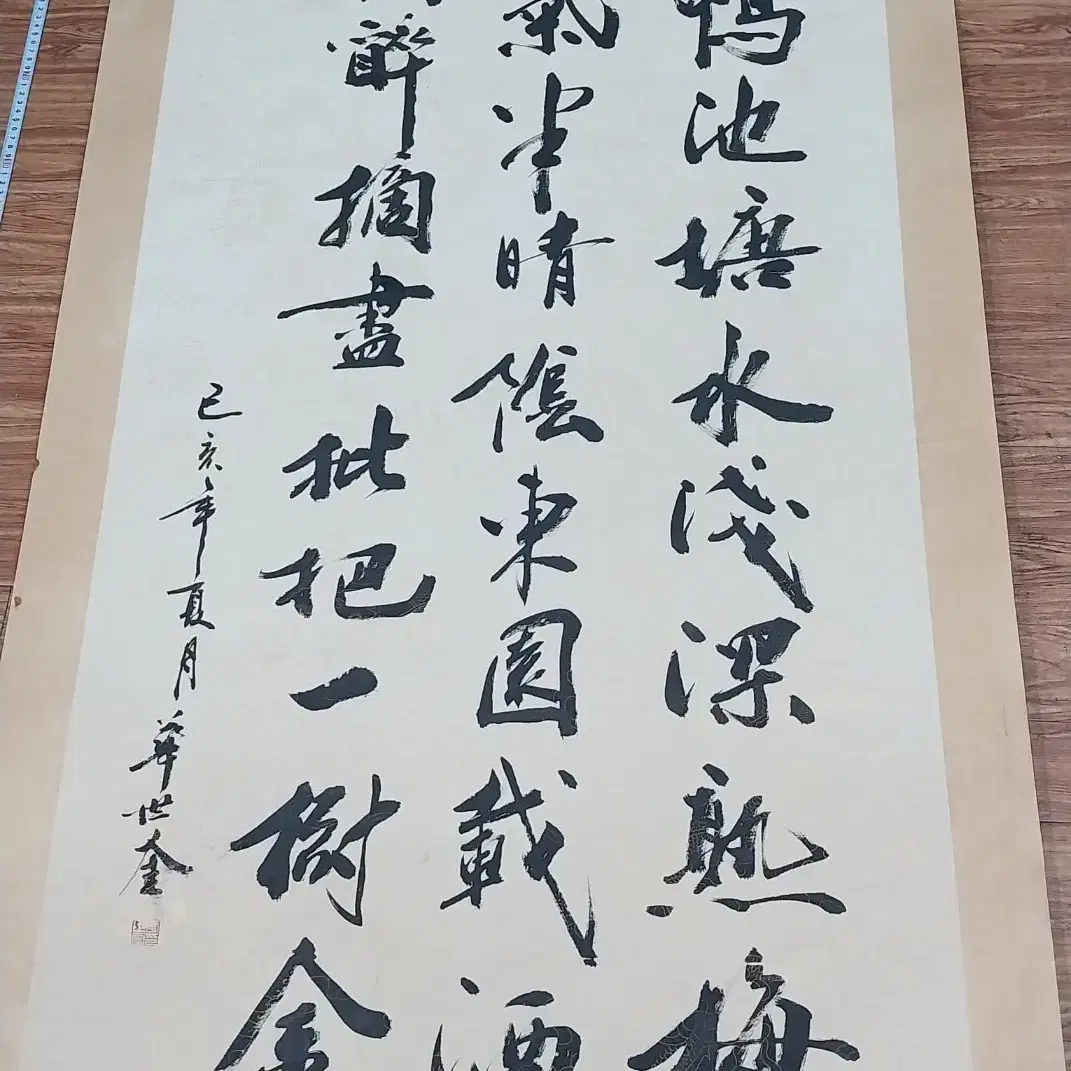 鴨池塘水淺深熟梅
氣半晴陰東園載酒
醉摘盡批把一樹金
己亥年夏月華世奎